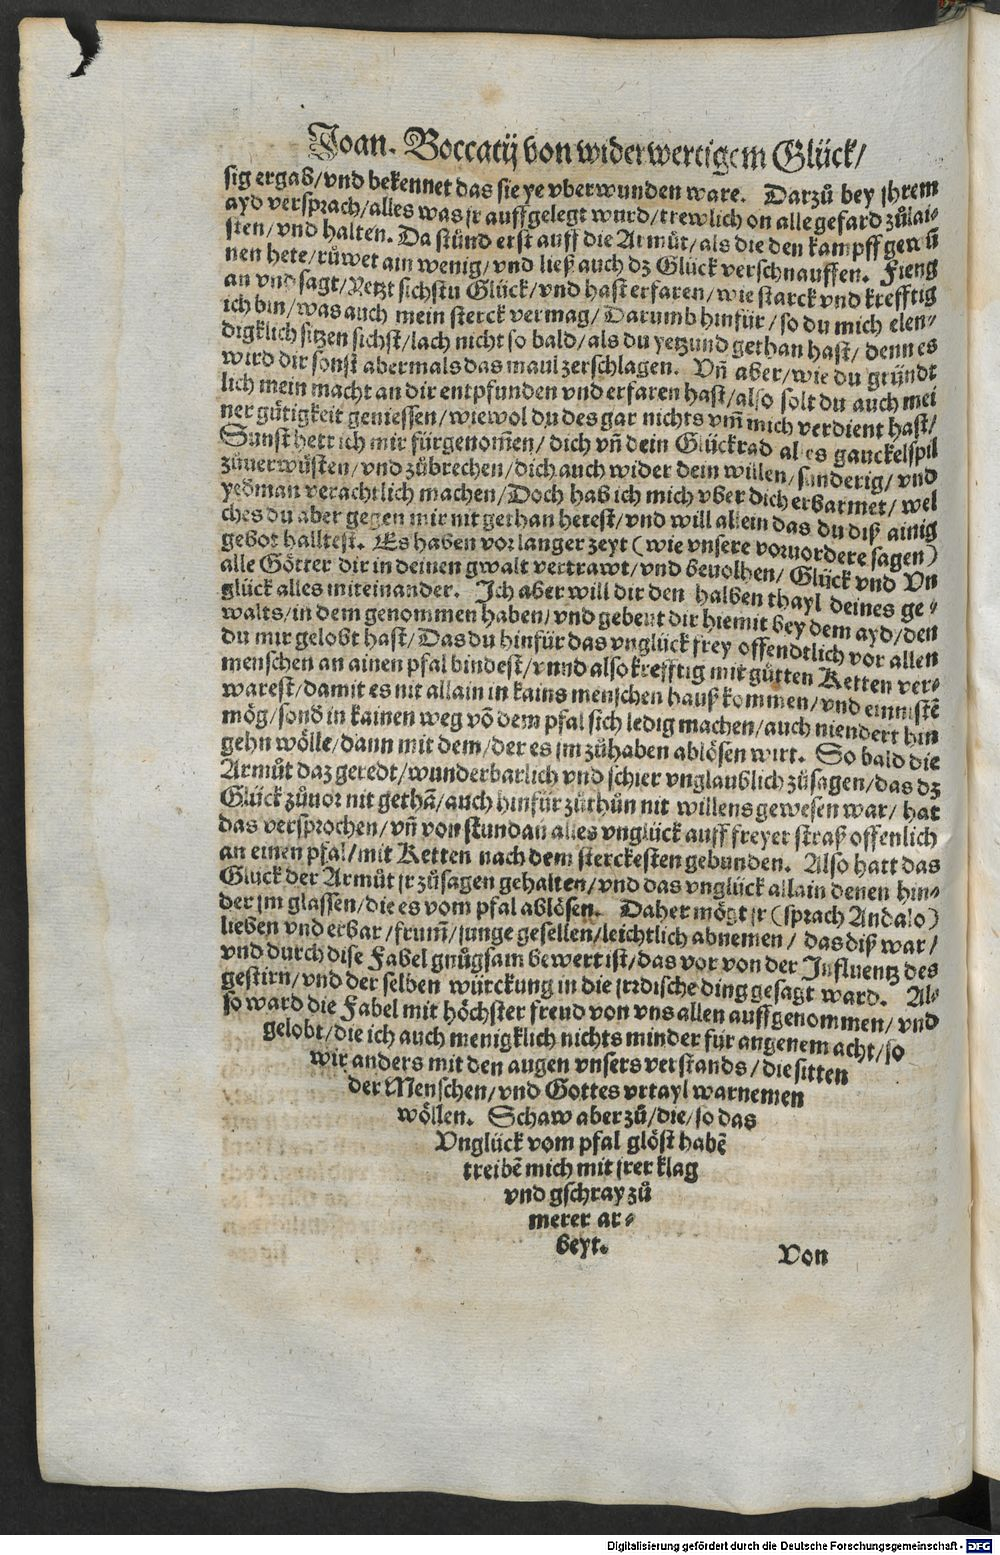 Joan. Boccatij von widerwertigem Glück/
sig ergab/vnd bekennet das sie ye vberwunden ware. Darzů bey jhrem
ayd versprach/alles was jr auffgelegt wurd/trewlich on alle gefard zůlai-
sten/vnd halten. Da stůnd erst auff die Armůt/als die den kampff gewū
nen hete/růwet ain wenig/vnd ließ auch dz Glück verschnauffen. Fieng
an vnd sagt/Yetzt sichstu Glück/vnd hast erfaren/wie starck vnd krefftig
ich bin/was auch mein sterck vermag/Darumb hinfür/so du mich elen-
digklich sitzen sichst/lach nicht so bald/als du yetzund gethan hast/denn es
wird dir sonst abermals das maul zerschlagen. Vn̄ aber/wie du gründt
lich mein macht an dir entpfunden vnd erfaren hast/also solt du auch mei
ner gütigkeit geniessen/wiewol du des gar nichts vm̄ mich verdient hast/
Sunst hett ich mir fürgenom̄en/dich vn̄ dein Glückrad alles gauckelspil
zůuerwůsten/vnd zůbrechen/dich auch wider dein willen/sunderig/vnd
yedman verachtlich machen/Doch hab ich mich vber dich erbarmet/wel
ches du aber gegen mir nit gethan hetest/vnd will allein das du diß ainig
gebot halltest. Es haben vor langer zeyt (wie vnsere voruordere sagen)
alle Götter dir in deinen gwalt vertrawt/vnd beuolhen/Glück vnd Vn
glück alles miteinander. Ich aber will dir den halben thayl deines ge-
walts/in dem genommen haben/vnd gebeut dir hiemit bey dem ayd/den
du mir gelobt hast/Das du hinfür das vnglück frey offendtlich vor allen
menschen an ainen pfal bindest/vnnd also krefftig mit gůtten Ketten ver-
warest/damit es nit allain in kains menschen hauß kommen/vnd einnistē
mög/sond̄ in kainen weg vō dem pfal sich ledig machen/auch niendert hin
gehn wölle/dann mit dem/der es jm zůhaben ablösen wirt. So bald die
Armůt daz geredt/wunderbarlich vnd schier vnglaublich zůsagen/das dz
Glück zůuor nit gethā/auch hinfür zůthůn nit willens gewesen war/hat
das versprochen/vn̄ von stundan alles vnglück auff freyer straß offenlich
an einen pfal/mit Ketten nach dem sterckesten gebunden. Also hatt das
Glück der Armůt jr zůsagen gehalten/vnd das vnglück allain denen hin-
der jm glassen/die es vom pfal ablösen. Daher mögt jr (sprach Andalo)
lieben vnd erbar/frum̄/junge gesellen/leichtlich abnemen/das diß war/
vnd durch dise Fabel gnůgsam bewert ist/das vor von der Influentz des
gestirn/vnd der selben würckung in die jrrdische ding gesagt ward. Al-
so ward die Fabel mit höchster freud von vns allen auffgenommen/vnd
gelobt/die ich auch menigklich nichts minder für angenem acht/so
wir anders mit den augen vnsers verstands/die sitten
der Menschen/vnd Gottes vrtayl warnemen
wöllen. Schaw aber zů/die/so das
Vnglück vom pfal glöst habē
treibē mich mit jrer klag
vnd gschray zů
merer ar-
beyt.
Von
Digitalisierung gefördert durch die Deutsche Forschungsgemeinschaft - DFG